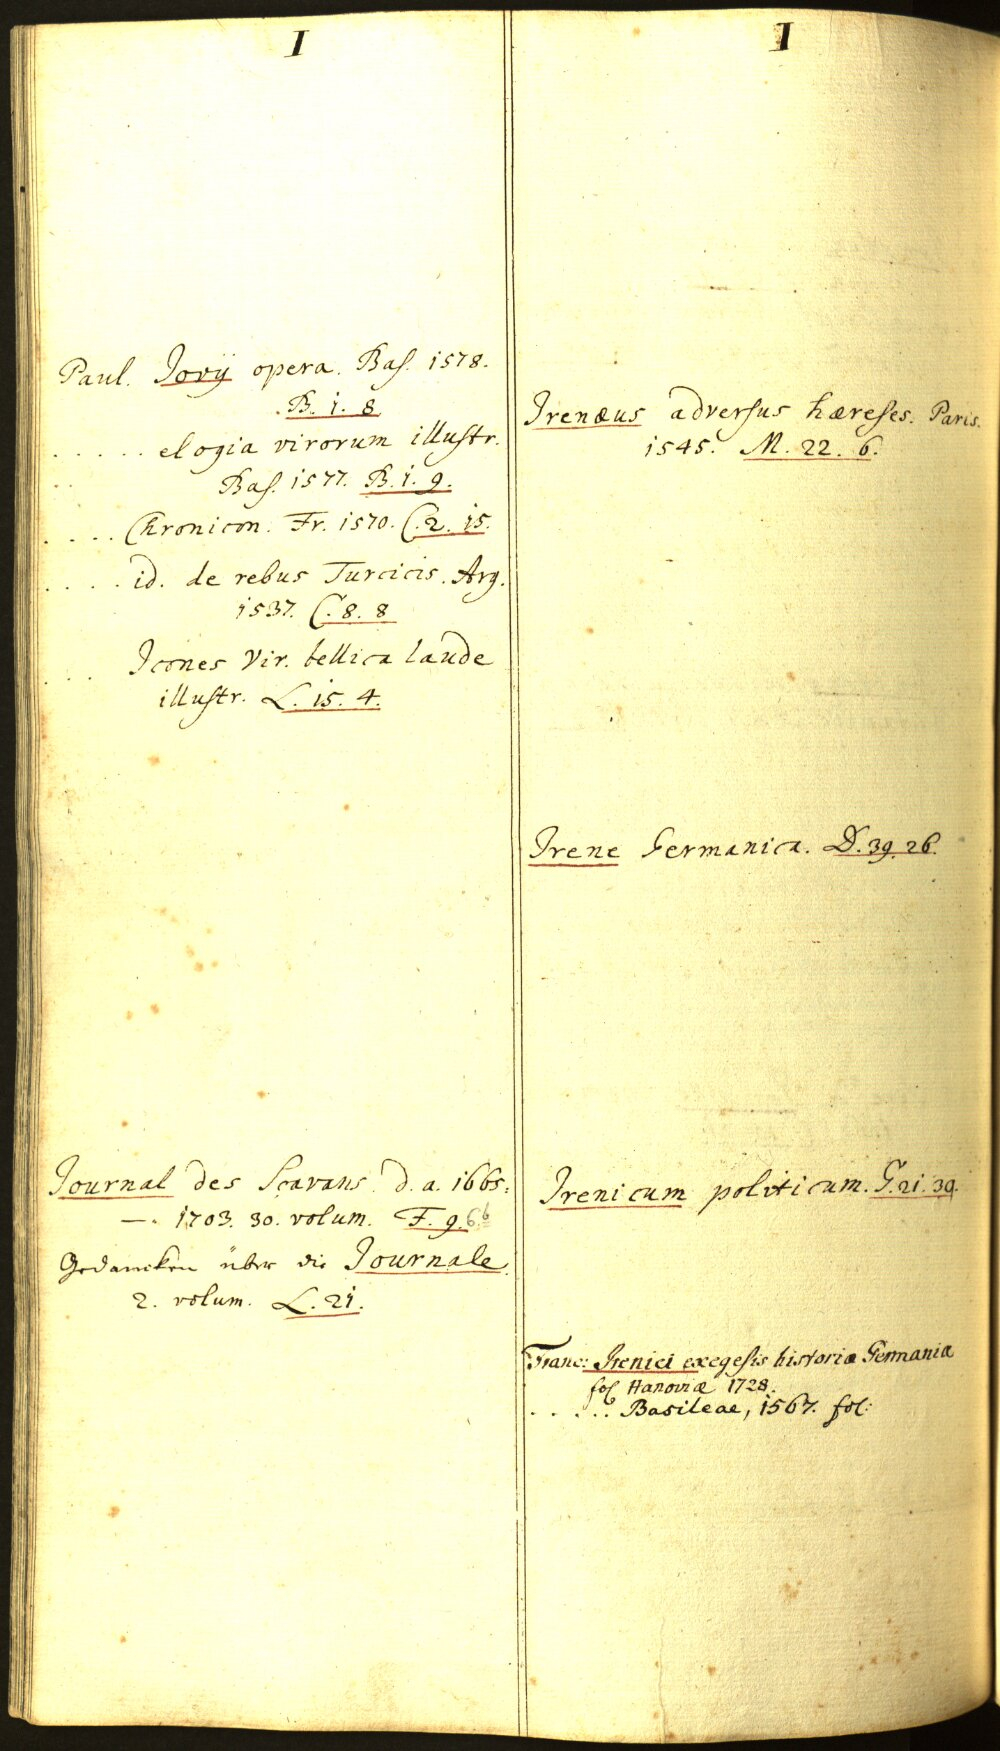 I
Paul. Jovij opera. Bas. 1578.
B. 1. 8
. . . . . elogia virorum illustr.
Bas. 1577. B. 1. 9.
. . . . Chronicon. Fr. 1570. C. 2. 15.
. . . . id. de rebus Turcicis. Arg.
1537. C. 8. 8
. . . Icones Vir. bellica laude
illustr. L. 15. 4.
Journal des Scavans. d. a. 1665.
—. 1703. 30. volum. F. 9.
Gedancken über die Journale.
2. volum. L. 21.
I
Irenæus adversus hæreses. Paris.
1545. M. 22. 6.
Irene Germanica. D. 39. 26.
Irenicum politicum. G. 21. 39.
Franc: Irenici exegesis historiæ Germaniæ
fol Hanoviæ 1728.
. . . . . Basileae, 1567. fol: